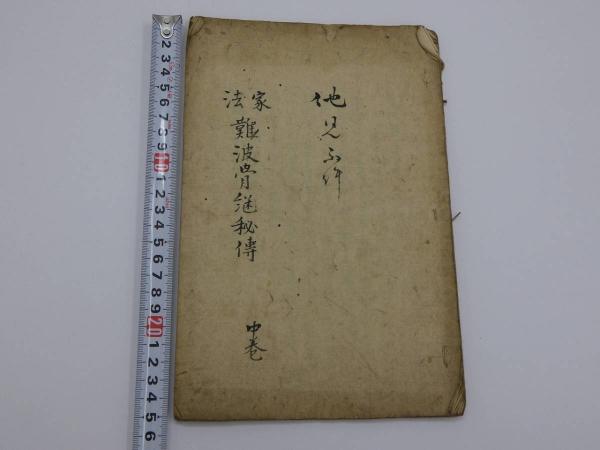 他見不許
家法
難波骨継秘傳
中巻
2 3 4 5 6 7 8 9 10 1 2 3 4 5 6 7 8 9 20 1 2 3 4 5 6